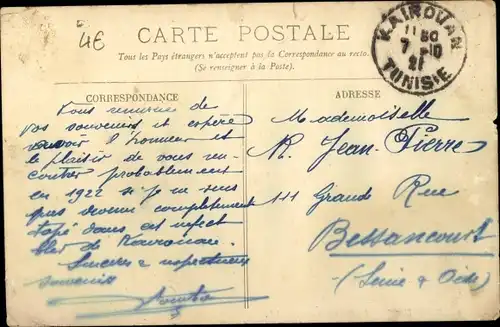 4E
CARTE POSTALE
Tous les Pays étrangers n'acceptent pas la Correspondance au recto.
(Se renseigner à la Poste).
KAIROUAN
11 50
7 -10
21
TUNISIE
CORRESPONDANCE
ADRESSE
Vous remercie de
vos souvenirs et espère
avoir l'honneur et
le plaisir de vous ren-
contrer probablement
en 1922 si je ne suis
pas devenu complètement
tapé dans cet
bled de Kairouan.
Sincères & respectueux
souvenirs
Mademoiselle
Jean-Pierre
111 Grande Rue
Bessancourt
(Seine & Oise)